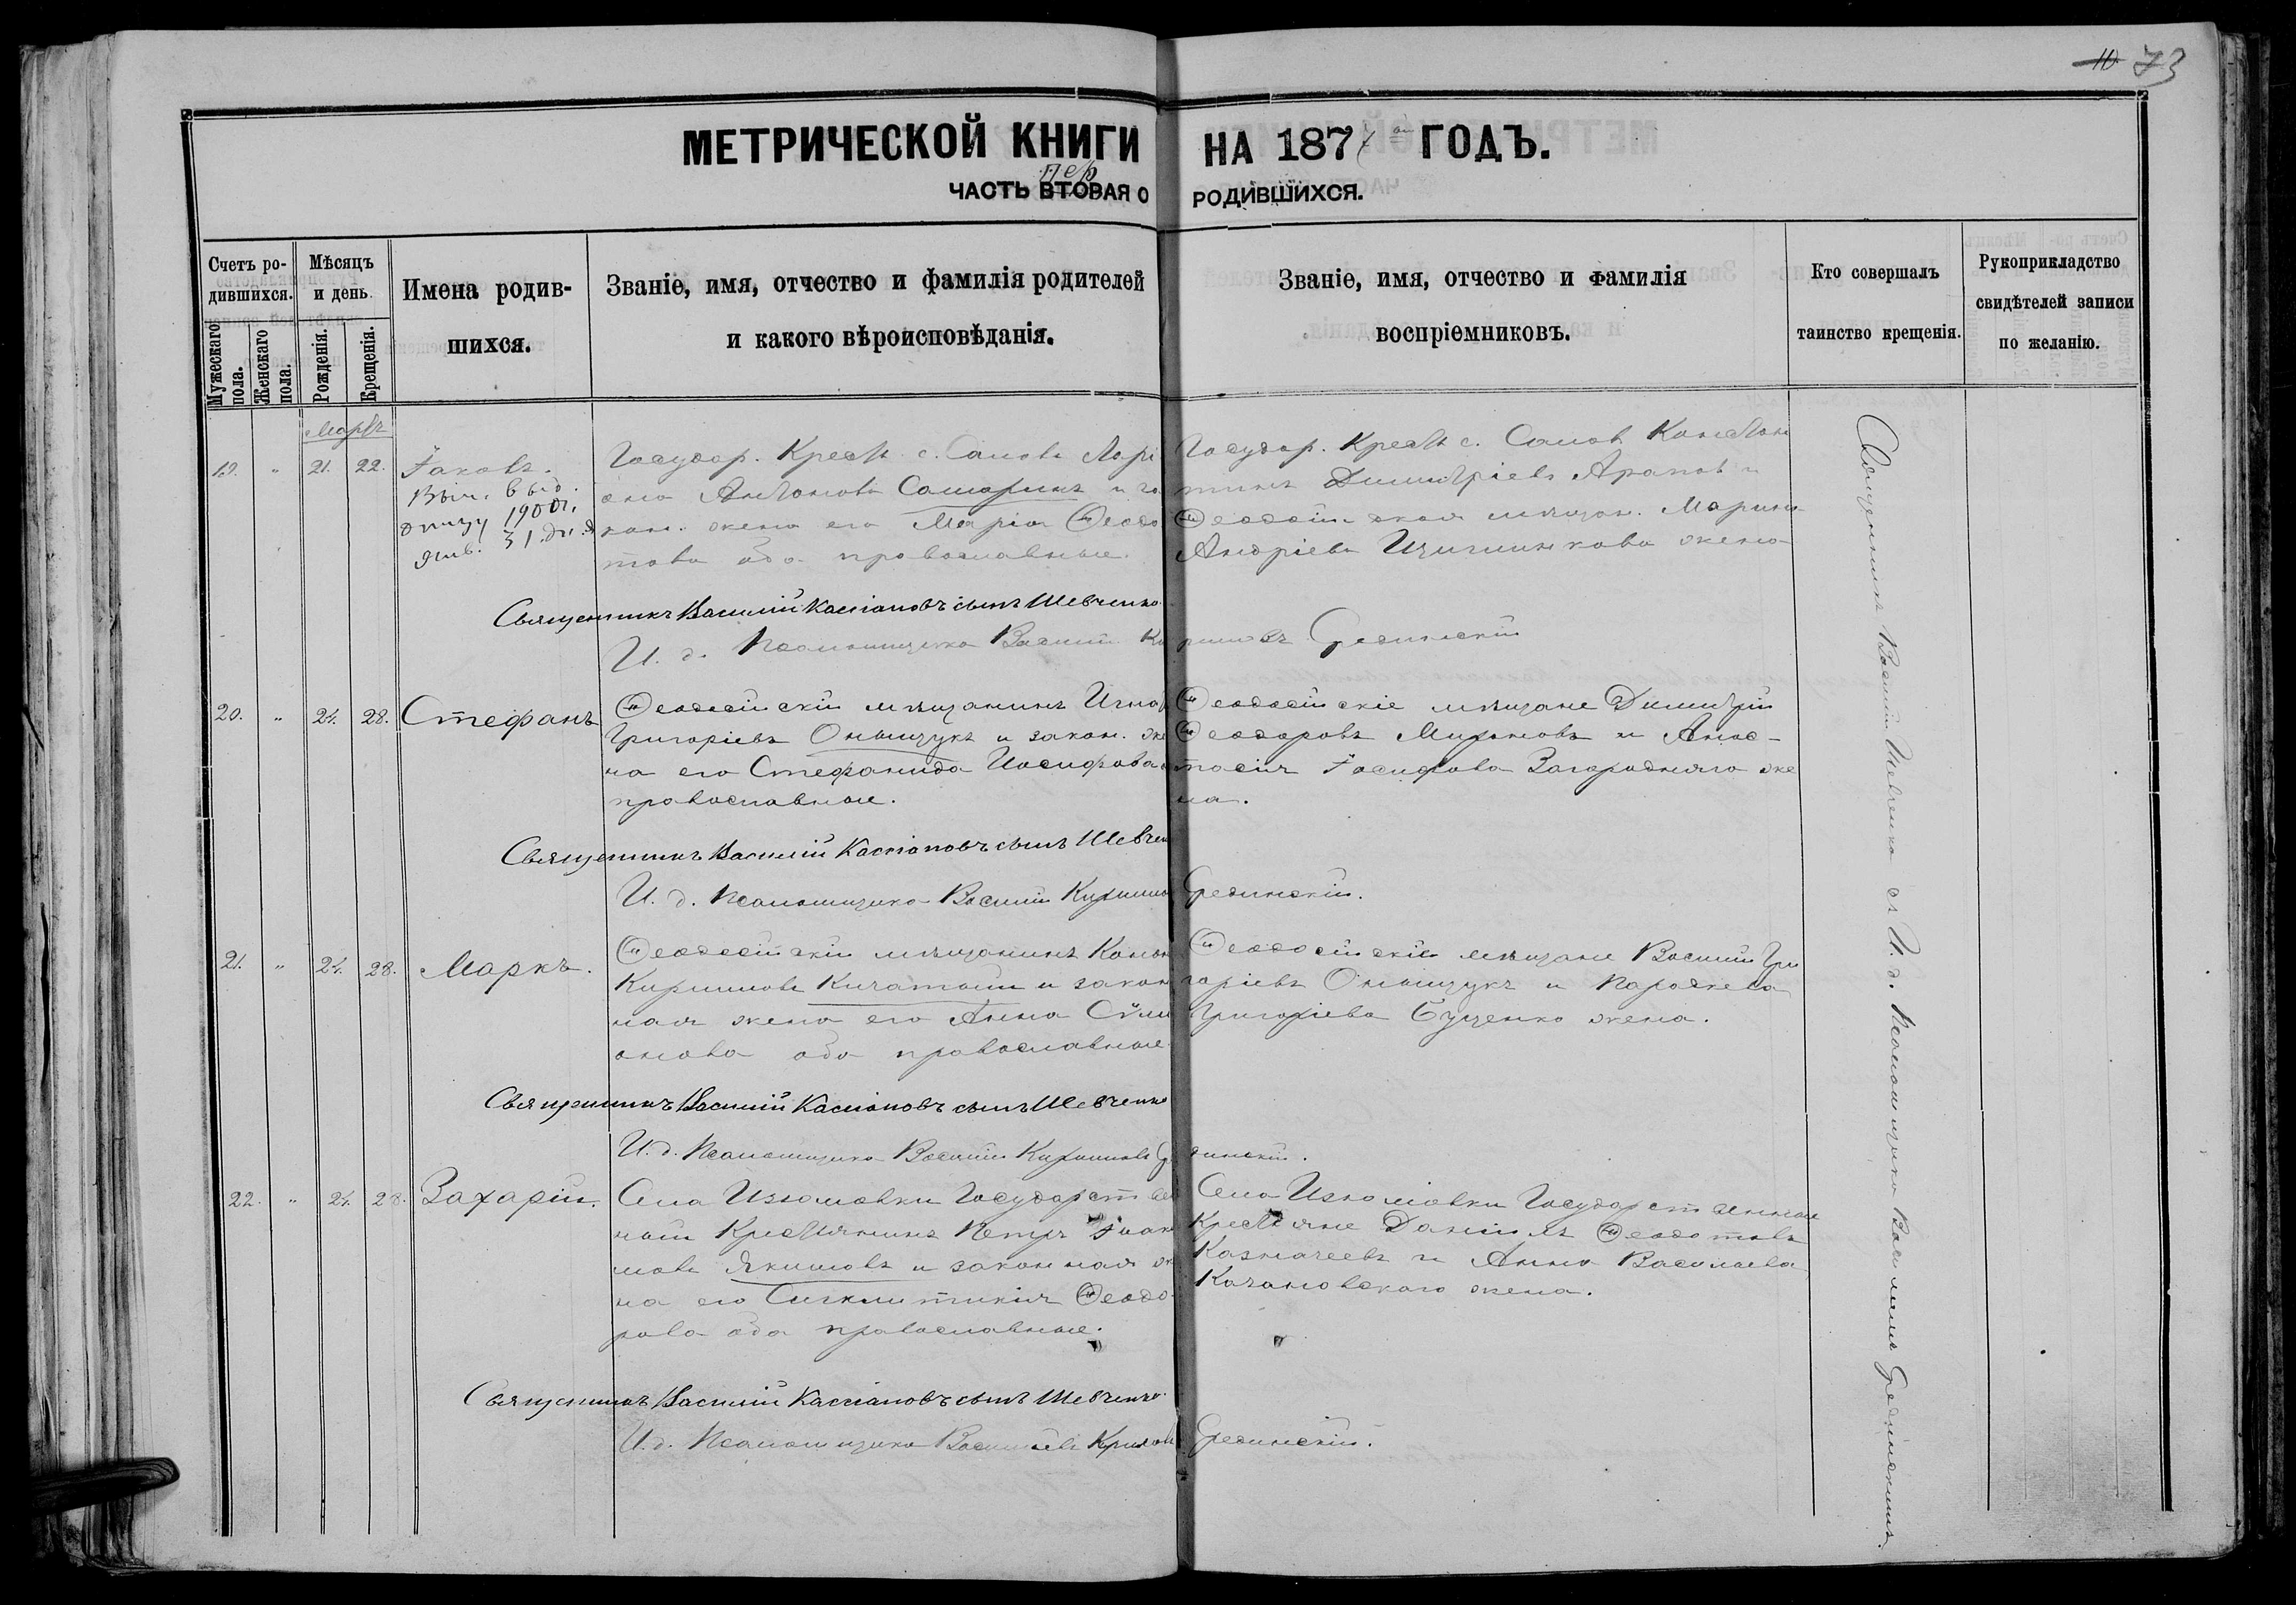 73
МЕТРИЧЕСКОЙ КНИГИ НА 187 ГОДЪ.
пер
ЧАСТЬ ВТОРАЯ О РОДИВШИХСЯ.
Счетъ родившихся.
Мужескаго пола.
Женскаго пола.
Мѣсяцъ и день
Рожденія.
Крещенія.
Имена родив-
шихся.
Званіе, имя, отчество и фамилія родителей
и какого вѣроисповѣданія.
Званіе, имя, отчество и фамилія
воспріемниковъ.
Кто совершалъ
таинство крещенія.
Рукоприкладство
свидѣтелей записи
по желанію.
Мартъ
19. " 21. 22. Іаковъ.
Вып. выд.
1900 г.
янв. 31 дн.
Государ. Крест. с.
Антоновъ Самаринъ и за
кон. жена его Марія Ѳеодо
това оба православные.
Государ. Крест. с. Констан
тинъ Димитріевъ Арапов и
Ѳеодосійская мѣщан. Марина
Андріева жена
Священникъ Василій Кассіановъ сынъ Шевченко
И. д. Псаломщика Василій Кириловъ Срединскій
20. " 24. 28. Стефанъ
Ѳеодосійскій мѣщанинъ Игнат
Григоріевъ Онищукъ и закон. же
на его Стефанида Иосифова
православные.
Ѳеодосійскіе мѣщане Димитрій
Ѳеодоровъ Мироновъ и Анас-
тасія Іосифова Загородняго же
на.
Священникъ Василій Кассіановъ сынъ Шевчен
И. д. Псаломщика Василій Кирилло Срединскій.
21. " 24. 28. Маркъ.
Ѳеодосійскій мѣщанинъ Конон
Кирилловъ и закон
ная жена его Анна Сѵми
онова оба православные
Ѳеодосійскіе мѣщане Василій Гри
горіевъ Онищукъ и Параскева
Григоріева Буценко жена.
Священникъ Василій Кассіановъ сынъ Шевченко
И. д. Псаломщика Василій Кирилловъ Срединскій.
22. " 24. 28. Захарій.
Села Изюмовки Государствен
ный Крестьянинъ Петръ Іоаки
мовъ Якимовъ и законная же
на его Сигклитикія Ѳеодо-
рова оба православные.
Села Изюмовки Государственные
Крестьяне Даніилъ Ѳеодотовъ
Казначеевъ и Анна Васильева
Качановскаго жена.
Священникъ Василій Кассіановъ сынъ Шевченко
И. д. Псаломщика Василій Кирилл Срединскій.
Священникъ Василій Шевченко съ И. д. Псаломщика Василіемъ Срединскимъ.